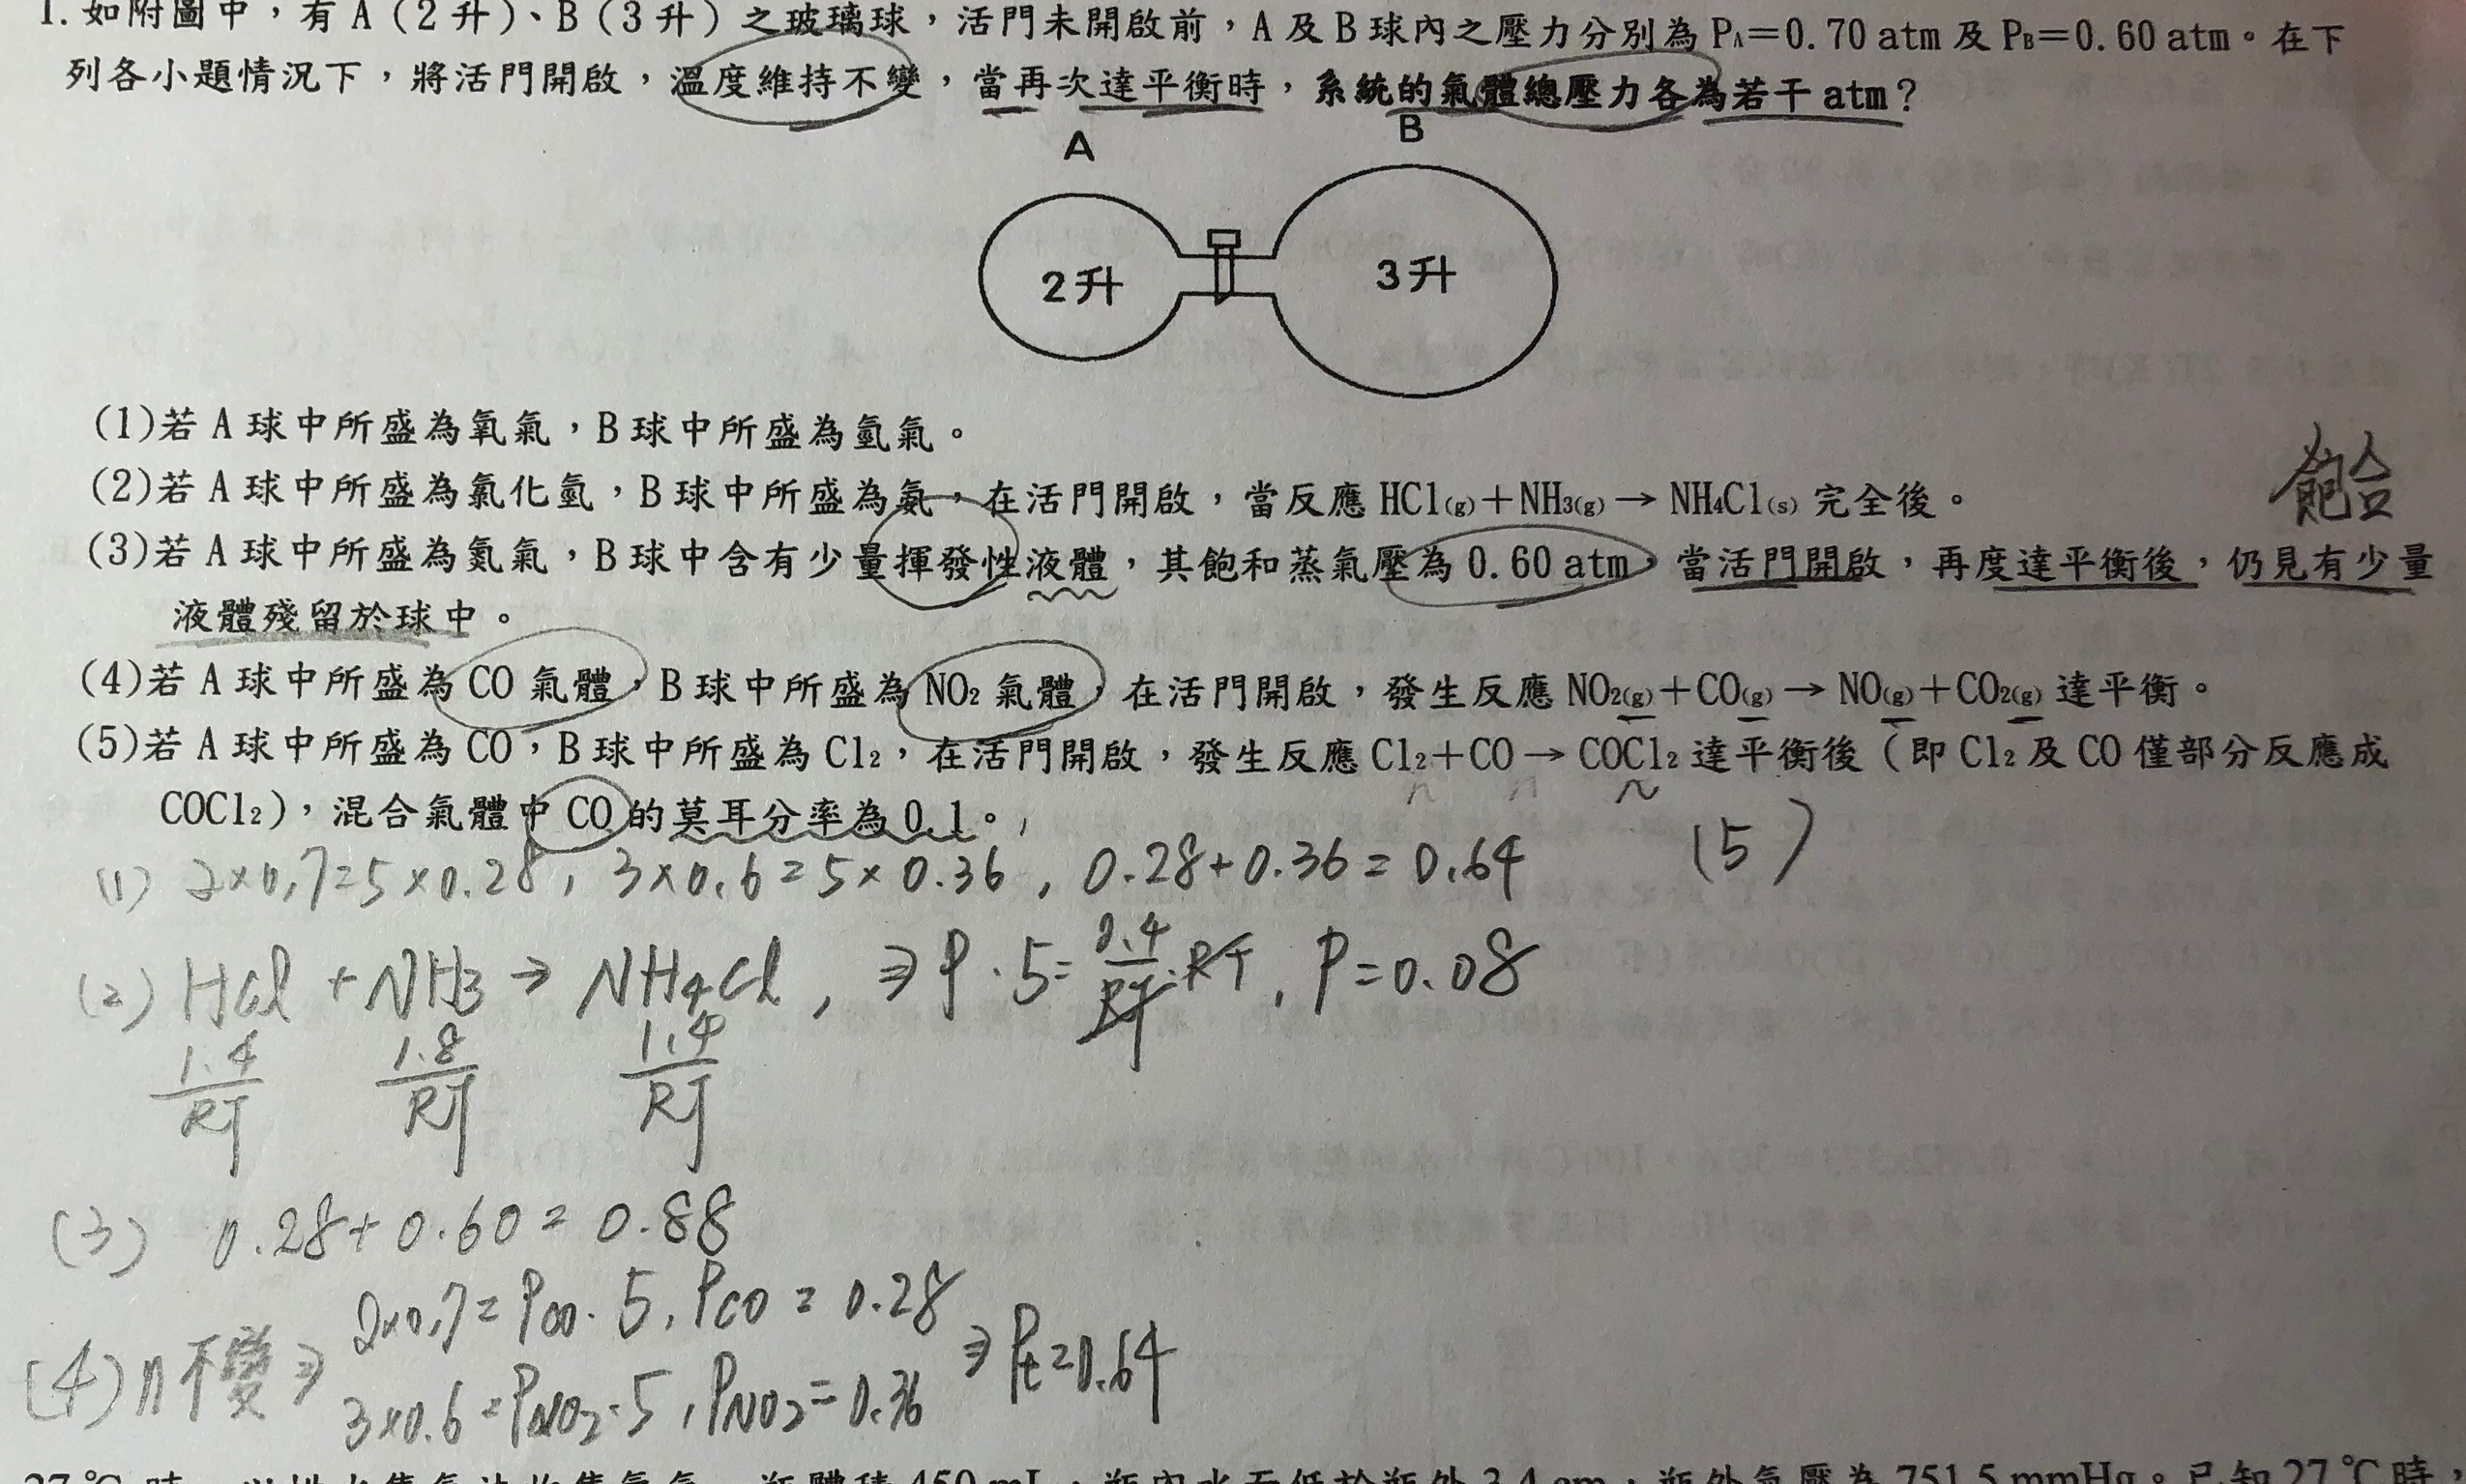 1.如附圖中，有 A（2 升）、B（3 升）之玻璃球，活門未開啟前，A 及 B 球內之壓力分別為 PA＝0.70 atm 及 PB＝0.60 atm。在下
列各小題情況下，將活門開啟，溫度維持不變，當再次達平衡時，系統的氣體總壓力各為若干 atm？
A
B
2升
3升
(1)若 A 球中所盛為氧氣，B 球中所盛為氫氣。
(2)若 A 球中所盛為氯化氫，B 球中所盛為氨，在活門開啟，當反應 HCl(g)＋NH3(g)→ NH4Cl(s) 完全後。
(3)若 A 球中所盛為氮氣，B 球中含有少量揮發性液體，其飽和蒸氣壓為 0.60 atm，當活門開啟，再度達平衡後，仍見有少量
液體殘留於球中。
(4)若 A 球中所盛為 CO 氣體，B 球中所盛為 NO2 氣體，在活門開啟，發生反應 NO2(g)＋CO(g)→ NO(g)＋CO2(g) 達平衡。
(5)若 A 球中所盛為 CO，B 球中所盛為 Cl2，在活門開啟，發生反應 Cl2＋CO → COCl2 達平衡後（即 Cl2 及 CO 僅部分反應成
COCl2），混合氣體中 CO 的莫耳分率為 0.1。
(1) 2×0.7=5×0.28, 3×0.6=5×0.36, 0.28+0.36=0.64
(5)
(2) HCl + NH3 → NH4Cl, ⇒ P·5= 0.4/RT·RT, P=0.08
1.4/RT 1.8/RT 1.4/RT
(3) 0.28+0.60=0.88
2×0.7=PCO·5, PCO=0.28
(4) n不變⇒ ⇒ Pt=0.64
3×0.6=PNO2·5, PNO2=0.36